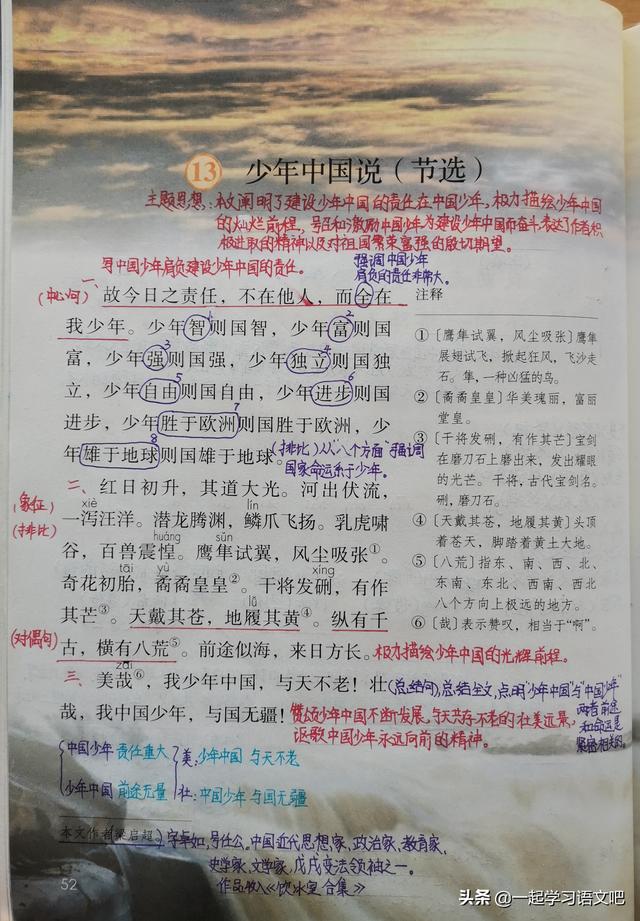 13 少年中国说（节选）
主题思想：本文阐明了建设少年中国的责任在中国少年，极力描绘少年中国
的灿烂前程，号召和激励中国少年为建设少年中国而奋斗，表达了作者积
极进取的精神以及对祖国繁荣富强的殷切期望。
写中国少年肩负建设少年中国的责任。
强调中国少年
肩负的责任非常大。
(中心句)
一、故今日之责任，不在他人，而全在
我少年。少年智则国智，少年富则国
富，少年强则国强，少年独立则国独
立，少年自由则国自由，少年进步则国
进步，少年胜于欧洲则国胜于欧洲，少
年雄于地球则国雄于地球。
1 2 3 4 5 6 7 8
(排比)从"八个方面"强调
国家命运系于少年。
(象征)
(排比)
二、红日初升，其道大光。河出伏流，
xiè
一泻汪洋。潜龙腾渊，鳞爪飞扬。乳虎啸
lín
谷，百兽震惶。鹰隼试翼，风尘吸张①。
huáng sǔn
奇花初胎，矞矞皇皇②。干将发硎，有作
tāi yù xíng
其芒③。天戴其苍，地履其黄④。纵有千
lǚ
(对偶句)
古，横有八荒⑤。前途似海，来日方长。
极力描绘少年中国的光辉前程。
zāi
三、美哉⑥，我少年中国，与天不老！壮
哉，我中国少年，与国无疆！
(总结句)总结全文，点明"少年中国"与"中国少年"
两者前途
和命运是
紧密相关的。
赞颂少年中国不断发展，与天共存不老的壮美远景，
讴歌中国少年永远向前的精神。
中国少年 责任重大
少年中国 前途无量
美：少年中国 与天不老
壮：中国少年 与国无疆
本文作者梁启超。字卓如，号任公。中国近代思想家、政治家、教育家、
史学家、文学家，戊戌变法领袖之一。
作品收入《饮冰室合集》
52
注释
①〔鹰隼试翼，风尘吸张〕鹰隼
展翅试飞，掀起狂风，飞沙走
石。隼，一种凶猛的鸟。
②〔矞矞皇皇〕华美瑰丽，富丽
堂皇。
③〔干将发硎，有作其芒〕宝剑
在磨刀石上磨出来，发出耀眼
的光芒。干将，古代宝剑名。
硎，磨刀石。
④〔天戴其苍，地履其黄〕头顶
着苍天，脚踏着黄土大地。
⑤〔八荒〕指东、南、西、北、
东南、东北、西南、西北
八个方向上极远的地方。
⑥〔哉〕表示赞叹，相当于“啊”。
头条 @一起学习语文吧